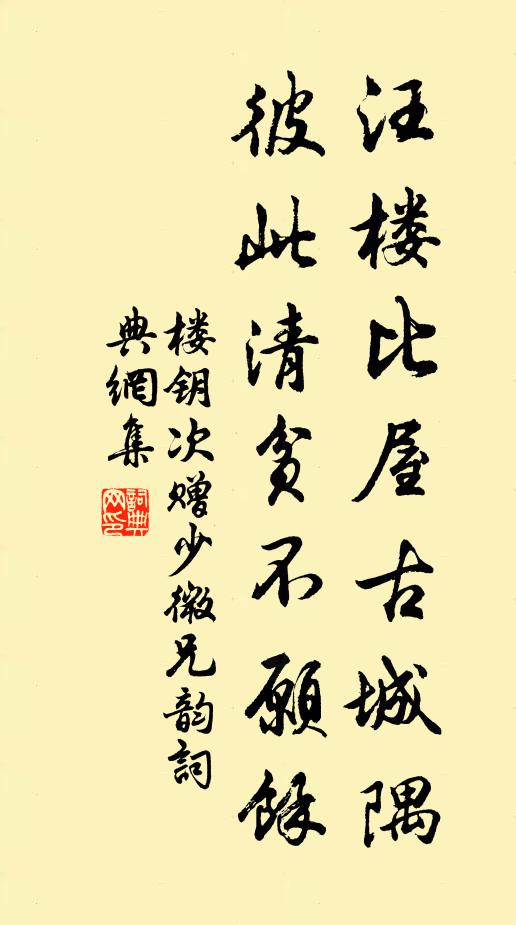 汪楼比屋古城隅
彼此清贫不願餘
楼钥次赠少微兄韵詞
典網集
詞典网印